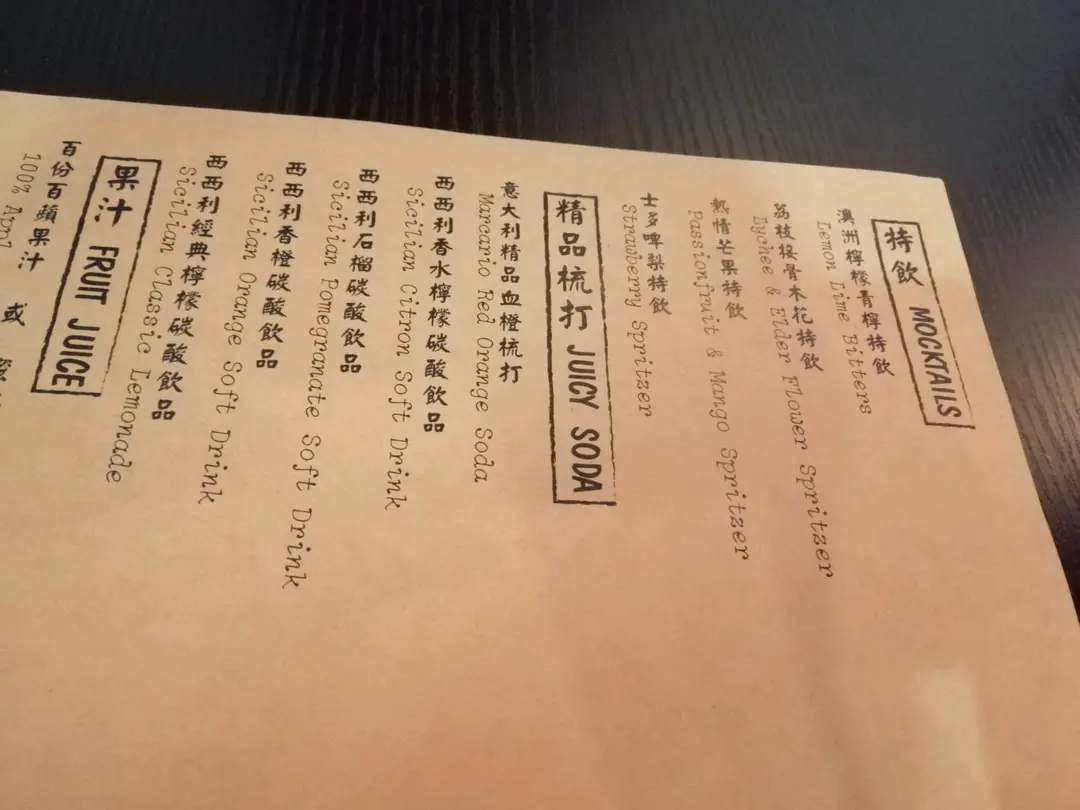 特飲 MOCKTAILS
澳洲檸檬青檸特飲
Lemon Lime Bitters
荔枝接骨木花特飲
Lychee & Elder Flower Spritzer
熱情芒果特飲
Passionfruit & Mango Spritzer
士多啤梨特飲
Strawberry Spritzer
精品梳打 JUICY SODA
意大利精品血橙梳打
Marcario Red Orange Soda
西西利香水檸檬碳酸飲品
Sicilian Citron Soft Drink
西西利石榴碳酸飲品
Sicilian Pomegranate Soft Drink
西西利香橙碳酸飲品
Sicilian Orange Soft Drink
西西利經典檸檬碳酸飲品
Sicilian Classic Lemonade
果汁 FRUIT JUICE
百份百蘋果汁 或
100%